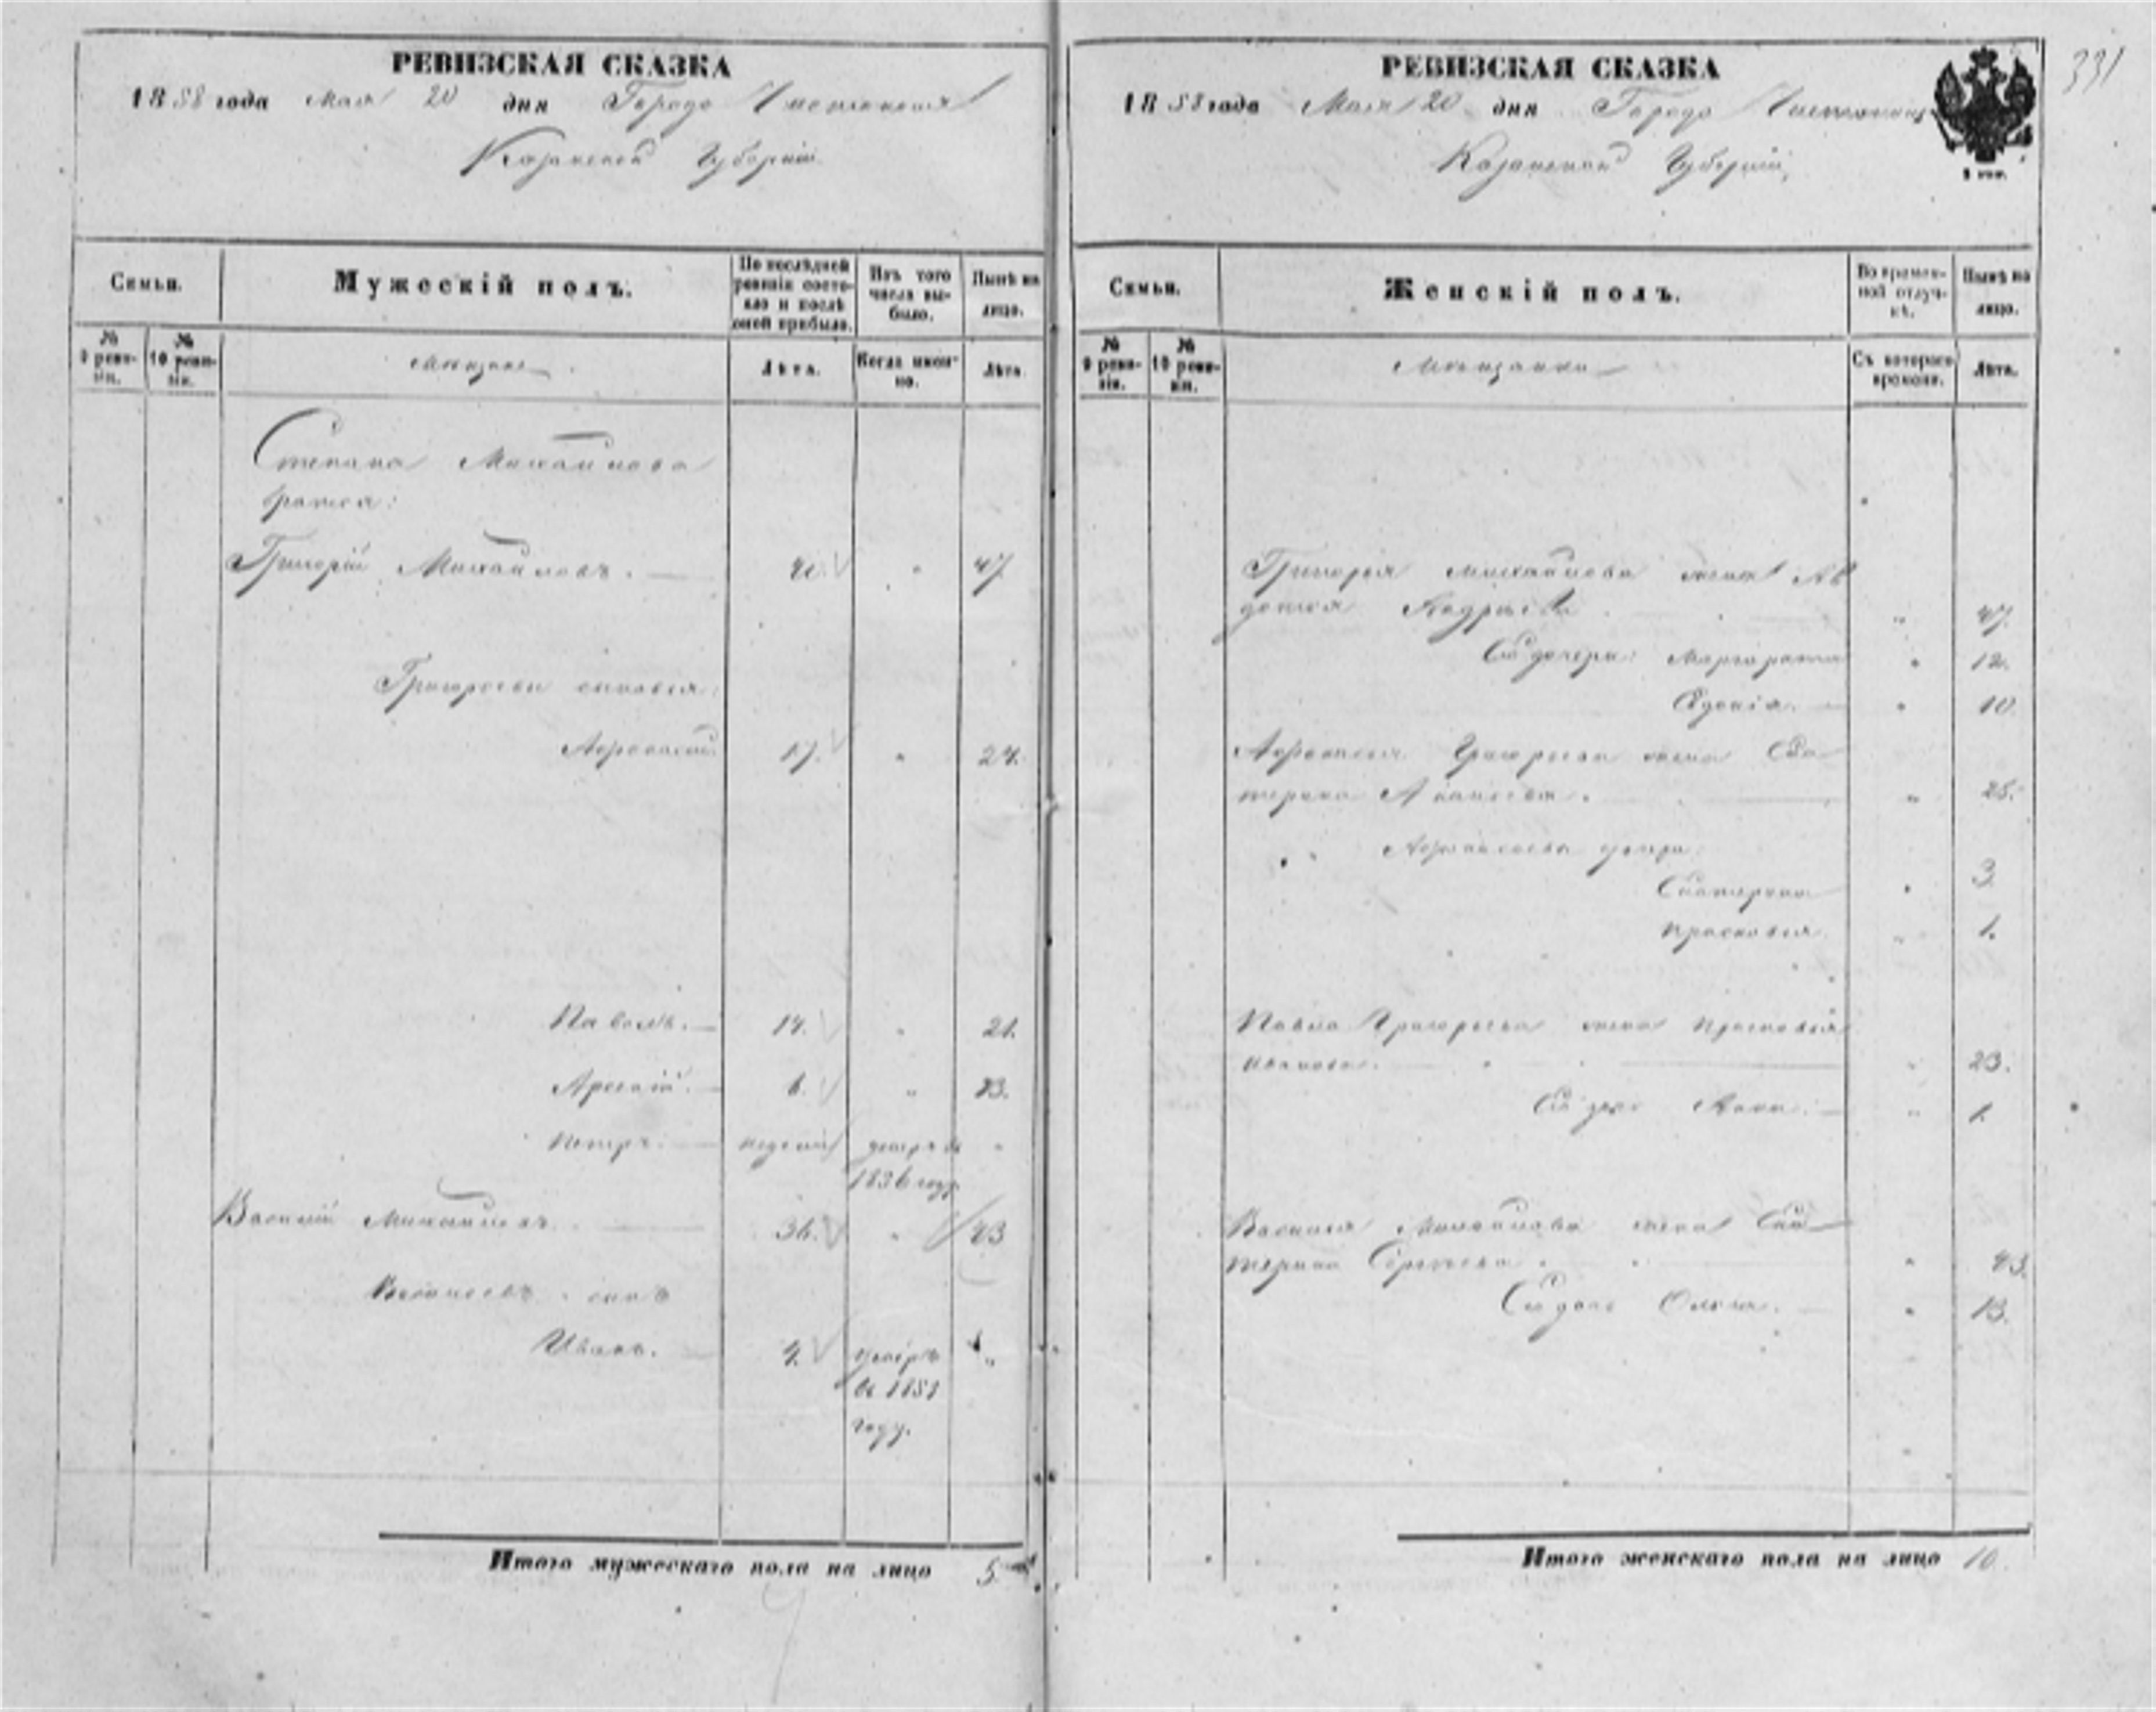 РЕВИЗСКАЯ СКАЗКА
1858 года Мая 20 дня Города Чистополя
Казанской Губернии
Семьи.
Мужескій полъ.
По послѣдней ревизіи состояло и послѣ оной прибыло.
Изъ того числа выбыло.
Нынѣ на лицо.
№ 9 ревизіи.
№ 10 ревизіи.
Мещане
Лѣта.
Когда имянно.
Лѣта.
Степана Михайлова
братья:
Григорій Михайловъ. 47
Григорьевы сыновья:
17. " 24.
Павелъ. 14. " 21.
6. " 13.
Петръ. недели
Василій Михайловъ 36. " 43
Васильевъ сынъ
Иванъ. 4. "
въ 1851
году.
Итого мужескаго пола на лицо 5
РЕВИЗСКАЯ СКАЗКА
1858 года Мая 20 дня Города
Казанской Губерніи
331
Семьи.
Женскій полъ.
Во временной отлучкѣ.
Нынѣ на лицо.
№ 9 ревизіи.
№ 10 ревизіи.
Мещанки
Съ котораго времени.
Лѣта.
Григорья Михайлова жена Ав
дотья " 47.
Ея дочери: Маргарита " 12.
" 10.
Григорьева жена Ека
терина " 25.
дочери
Екатерина " 3.
Прасковья " 1.
Павла Григорьева жена Прасковья
Иванова. " 23.
Ея дочь Анна. " 1.
Василья Михайлова жена Ека
терина Сергеева " 43.
Ея дочь Ольга. " 13.
Итого женскаго пола на лицо 10.